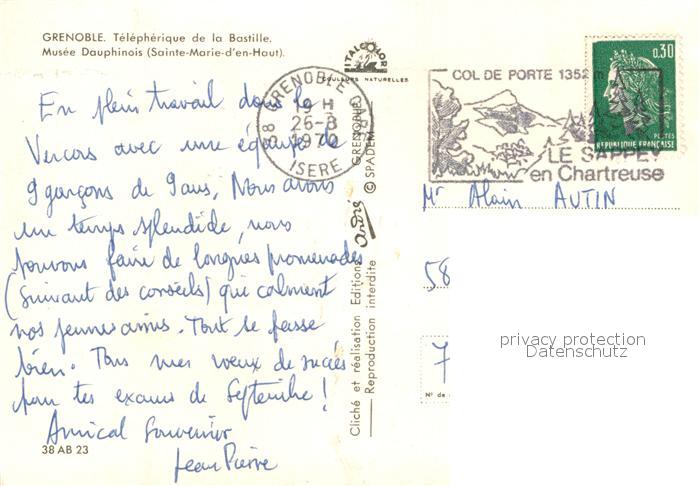 GRENOBLE. Téléphérique de la Bastille.
Musée Dauphinois (Sainte-Marie-d'en-Haut).
En plein travail dans le
Vercors avec une équipe de
9 garçons de 9 ans. Nous avons
un temps splendide, nous
pouvons faire de longues promenades
(suivant des conseils) qui calment
nos jeunes amis. Tout se passe
bien. Tous mes voeux de succès
pour tes exams de Septembre !
Amical Souvenir
Jean Pierre
38 AB 23
ITALCOLOR
COULEURS NATURELLES
38 GRENOBLE
19 H
26-8
1970
ISERE
GRENOBLE
© SPADEM
André
Cliché et réalisation Editions
Reproduction interdite
COL DE PORTE 1352 m
LE SAPPEY
en Chartreuse
0,30
POSTES
REPUBLIQUE FRANÇAISE
Mr Alain AUTIN
58
7
N° de
privacy protection
Datenschutz